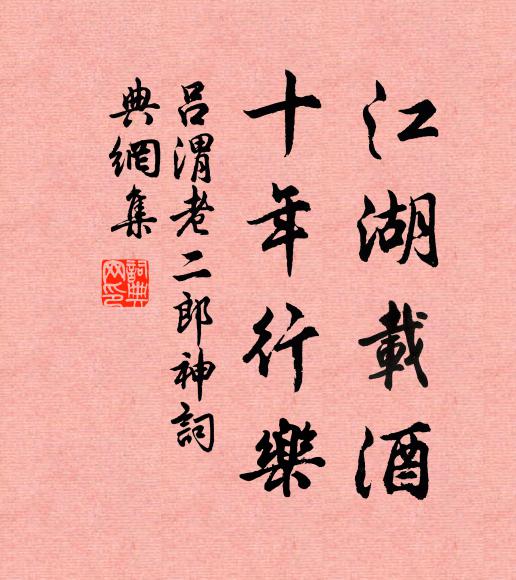 江湖載酒
十年行樂
呂渭老二郎神詞
典網集
詞典
网印